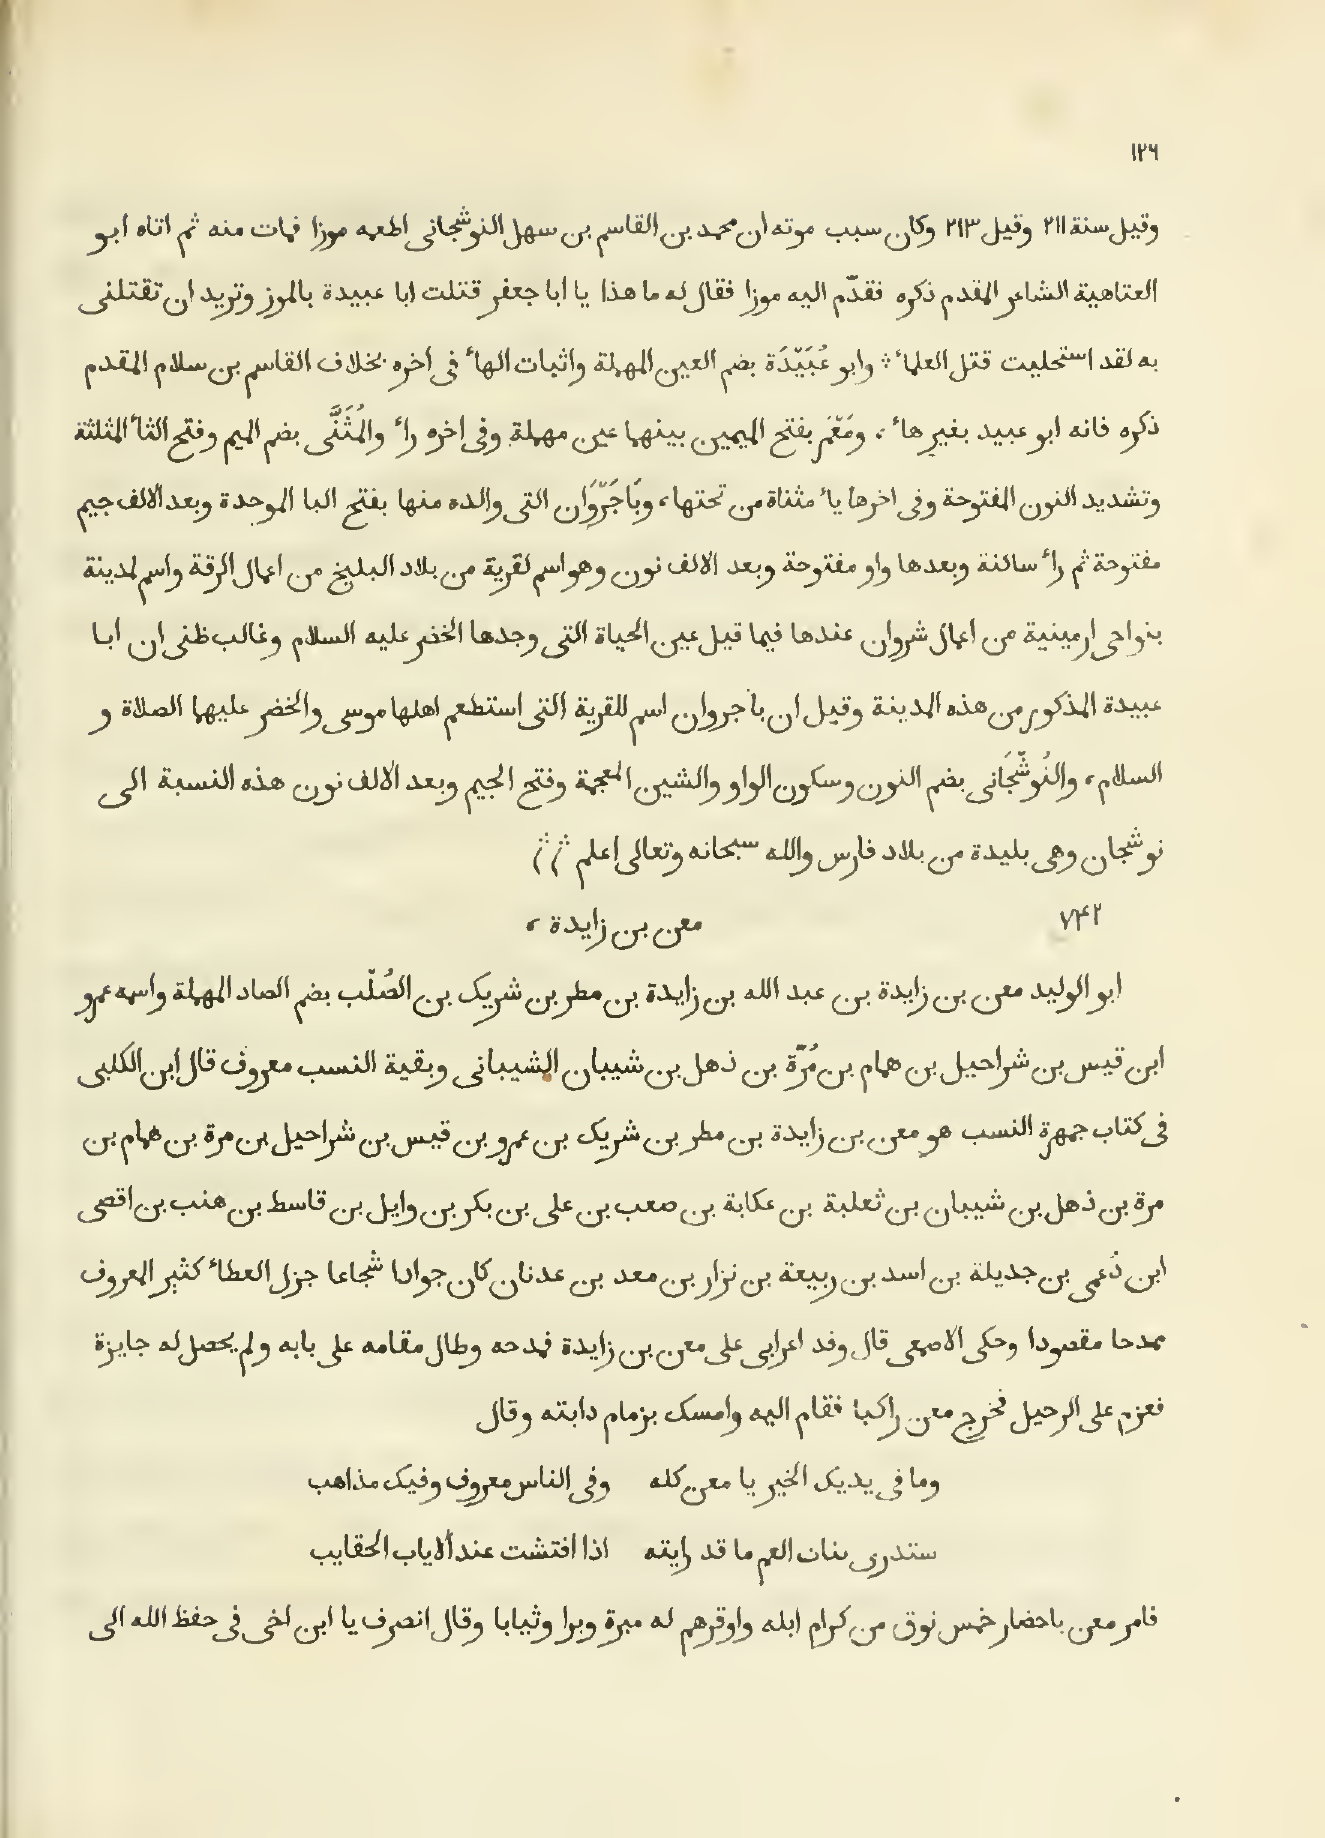 ١٢٦
وقيل سنة ٢١١ وقيل ٢١٣ وكان سبب موته ان محمد بن القاسم بن سهل النوشجانى اطعمه موزا فمات منه ثم اتاه ابو
العتاهية الشاعر المقدم ذكره فقدّم اليه موزا فقال له ما هذا يا ابا جعفر قتلت ابا عبيدة بالموز وتريد ان تقتلنى
به لقد استحليت قتل العلماء ؞ وابو عُبَيْدَة بضم العين المهملة واثبات الهاء فى اخره بخلاف القاسم بن سلام المقدم
ذكره فانه ابو عبيد بغير هاء ، ومَعْمَر بفتح الميمين بينهما عين مهملة وفى اخره راء والمُثَنَّى بضم الميم وفتح الثاء المثلثة
وتشديد النون المفتوحة وفى اخرها ياء مثناة من تحتها ، وبَاجَرْوَان التى والده منها بفتح البا الموحدة وبعد الالف جيم
مفتوحة ثم راء ساكنة وبعدها واو مفتوحة وبعد الالف نون وهو اسم لقرية من بلاد البليخ من اعمال الرقة واسم لمدينة
بنواحى ارمينية من اعمال شروان عندها فيما قيل عين الحياة التى وجدها الخضر عليه السلام وغالب ظنى ان ابا
عبيدة المذكور من هذه المدينة وقيل ان باجروان اسم للقرية التى استطعم اهلها موسى والخضر عليهما الصلاة و
السلام ، والنُوشْجَانى بضم النون وسكون الواو والشين المعجمة وفتح الجيم وبعد الالف نون هذه النسبة الى
نوشجان وهى بليدة من بلاد فارس والله سبحانه وتعالى اعلم
٧٤٢ معن بن زايدة ،
ابو الوليد معن بن زايدة بن عبد الله بن زايدة بن مطر بن شريك بن الصُلْب بضم الصاد المهملة واسمه عمرو
ابن قيس بن شراحيل بن همام بن مُرّة بن ذهل بن شيبان الشيبانى وبقية النسب معروف قال ابن الكلبى
فى كتاب جمهرة النسب هو معن بن زايدة بن مطر بن شريك بن عمرو بن قيس بن شراحيل بن مرة بن همام بن
مرة بن ذهل بن شيبان بن ثعلبة بن عكابة بن صعب بن على بن بكر بن وايل بن قاسط بن هنب بن اقصى
ابن دُعمى بن جديلة بن اسد بن ربيعة بن نزار بن معد بن عدنان كان جوادا شجاعا جزل العطاء كثير المعروف
ممدحا مقصودا وحكى الاصمعى قال وفد اعرابى على معن بن زايدة فمدحه وطال مقامه على بابه ولم يحصل له جايزة
فعزم على الرحيل فخرج معن راكبا فقام اليه وامسك بزمام دابته وقال
وما فى يديك الخير يا معن كله وفى الناس معروف وفيك مذاهب
ستدرى بنات العم ما قد رايته اذا افتشت عند الاياب الحقايب
فامر معن باحضار خمس نوق من كرام ابله واوقرهم له ميرة وبرا وثيابا وقال انصرف يا ابن اخى فى حفظ الله الى